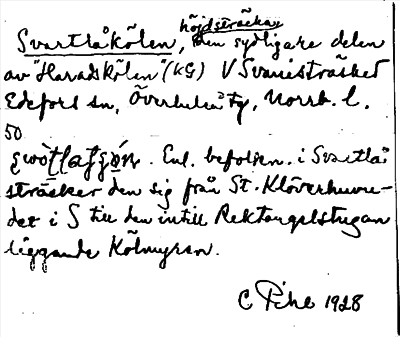 höjdsträcka,
Svartlåkölen, den sydligare delen
av "Haradskölen" (KG) V Svanisträsket
Edefors sn, Överluleå tg, Norrb. l.
50
. Enl. befolkn. i Svartlå
sträcker den sig från St. Klöverhuvu-
det i S till den intill Rektangelstugan
liggande Kölmyran.
C Pihl 1928